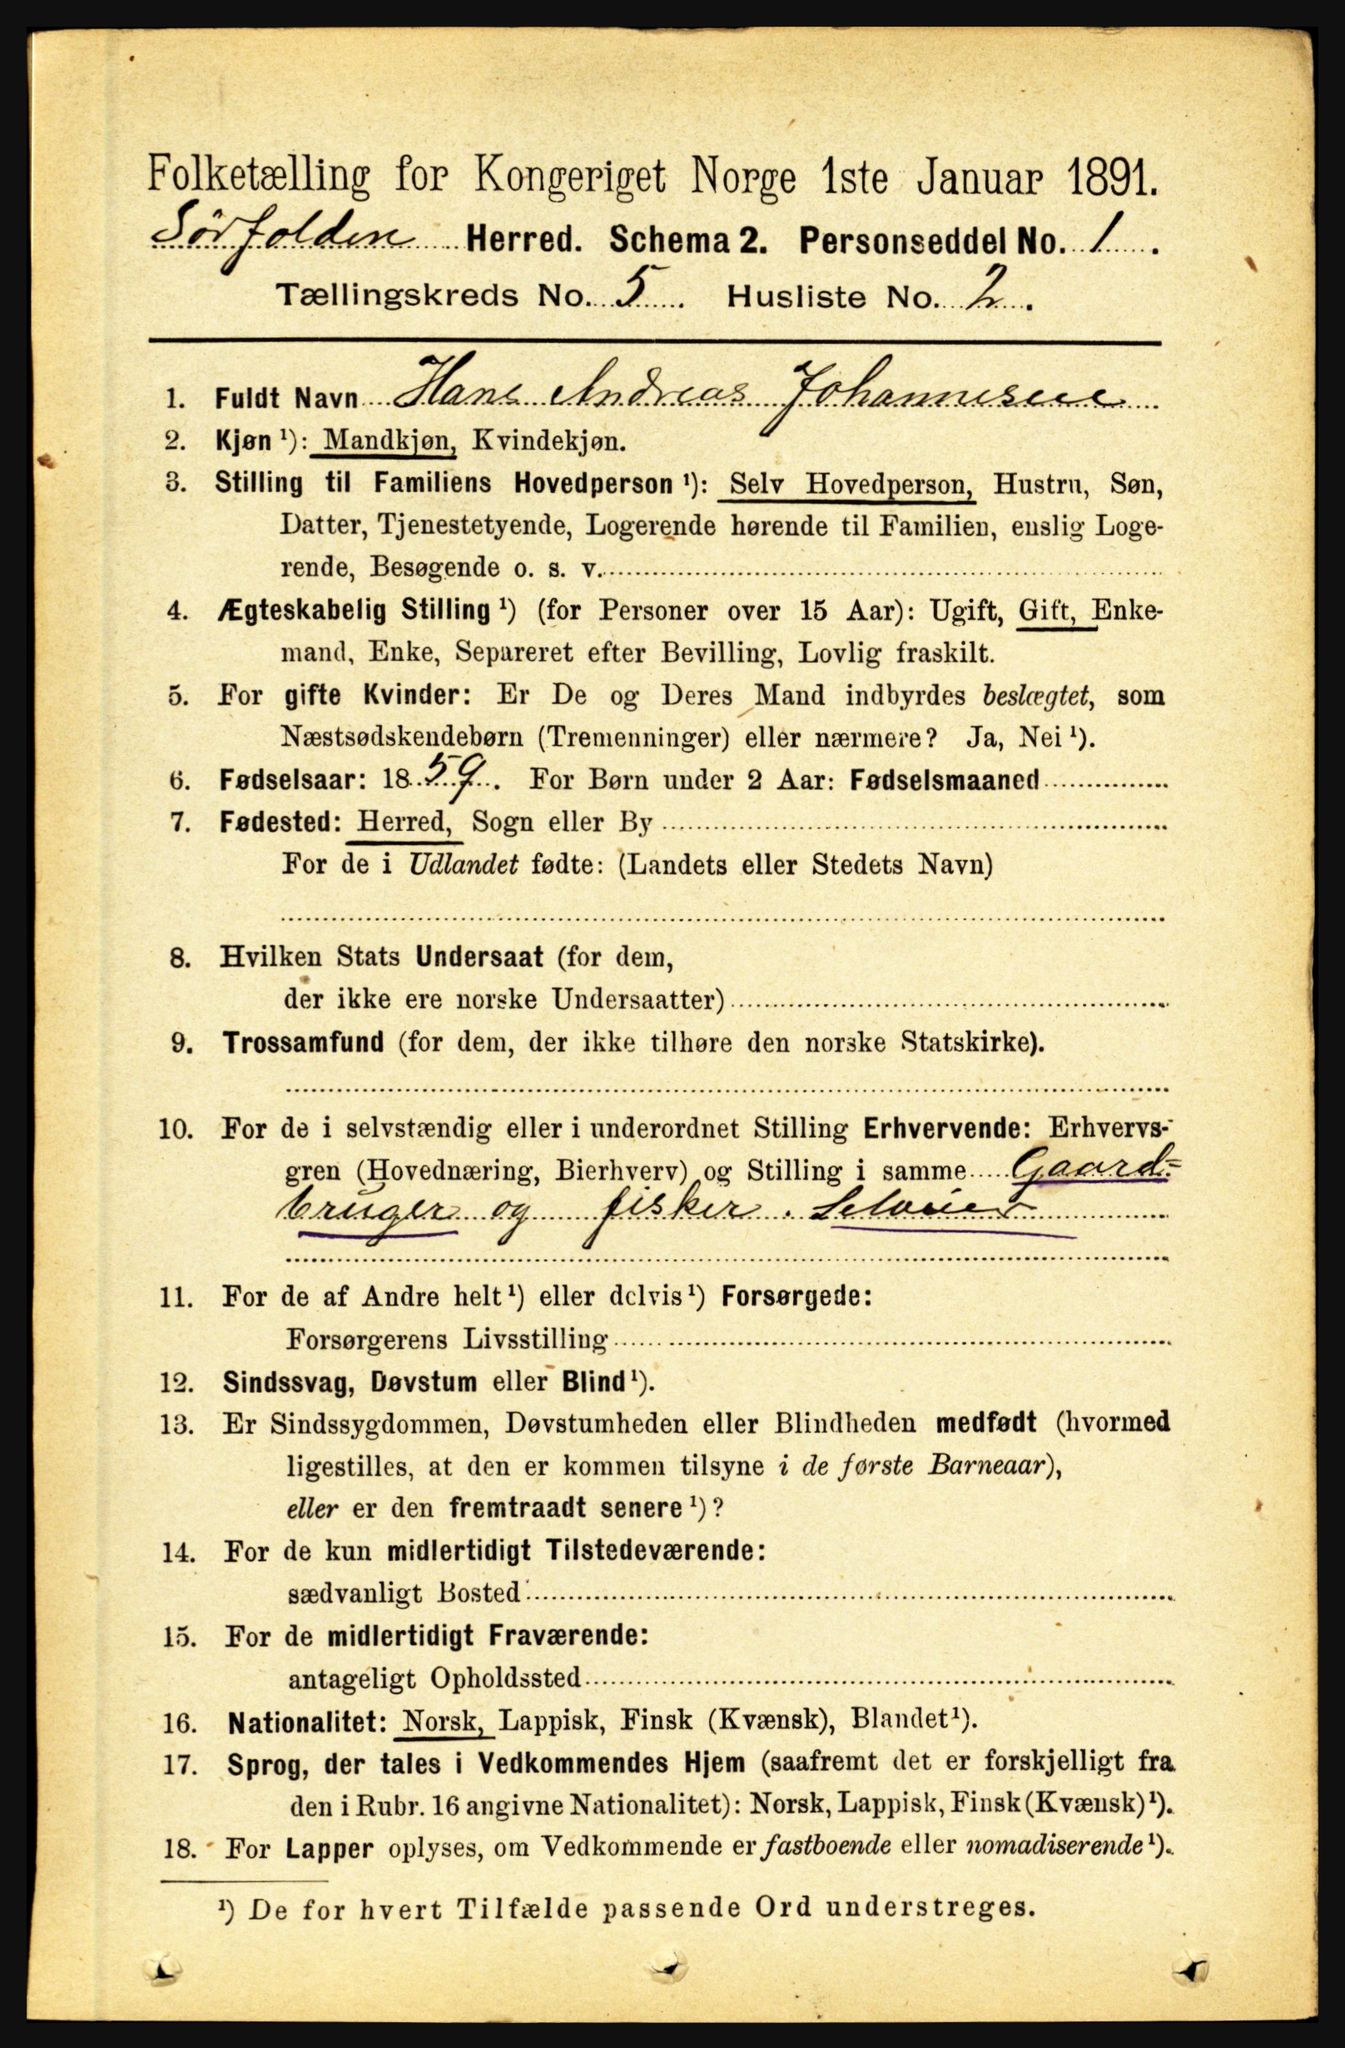 Folketælling for Kongeriget Norge 1ste Januar 1891.
Sørfolden Herred. Schema 2. Personseddel No. 1.
Tællingskreds No. 5. Husliste No. 2.
1. Fuldt Navn Hans Andreas Johannesen
2. Kjøn ¹): Mandkjøn, Kvindekjøn.
3. Stilling til Familiens Hovedperson ¹): Selv Hovedperson, Hustru, Søn,
Datter, Tjenestetyende, Logerende hørende til Familien, enslig Loge-
rende, Besøgende o. s. v.
4. Ægteskabelig Stilling ¹) (for Personer over 15 Aar): Ugift, Gift, Enke-
mand, Enke, Separeret efter Bevilling, Lovlig fraskilt.
5. For gifte Kvinder: Er De og Deres Mand indbyrdes beslægtet, som
Næstsødskendebørn (Tremenninger) eller nærmere? Ja, Nei ¹).
6. Fødselsaar: 1859. For Børn under 2 Aar: Fødselsmaaned
7. Fødested: Herred, Sogn eller By
For de i Udlandet fødte: (Landets eller Stedets Navn)
8. Hvilken Stats Undersaat (for dem,
der ikke ere norske Undersaatter)
9. Trossamfund (for dem, der ikke tilhøre den norske Statskirke).
10. For de i selvstændig eller i underordnet Stilling Erhvervende: Erhvervs-
gren (Hovednæring, Bierhverv) og Stilling i samme Gaard=
bruger og fisker. Selveier
11. For de af Andre helt ¹) eller delvis ¹) Forsørgede:
Forsørgerens Livsstilling
12. Sindssvag, Døvstum eller Blind ¹).
13. Er Sindssygdommen, Døvstumheden eller Blindheden medfødt (hvormed
ligestilles, at den er kommen tilsyne i de første Barneaar),
eller er den fremtraadt senere ¹)?
14. For de kun midlertidigt Tilstedeværende:
sædvanligt Bosted
15. For de midlertidigt Fraværende:
antageligt Opholdssted
16. Nationalitet: Norsk, Lappisk, Finsk (Kvænsk), Blandet ¹).
17. Sprog, der tales i Vedkommendes Hjem (saafremt det er forskjelligt fra
den i Rubr. 16 angivne Nationalitet): Norsk, Lappisk, Finsk (Kvænsk) ¹).
18. For Lapper oplyses, om Vedkommende er fastboende eller nomadiserende ¹).
¹) De for hvert Tilfælde passende Ord understreges.